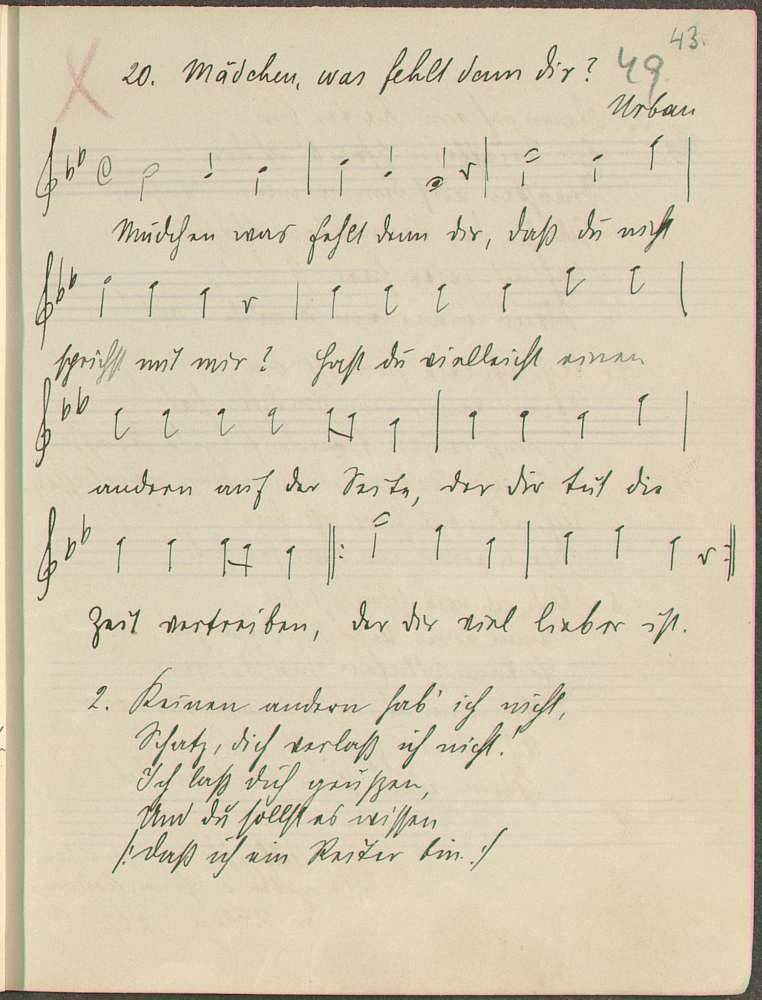 43.
20. Mädchen, was fehlt denn dir? 49
Urban
Mädchen was fehlt denn dir, daß du nicht
sprichst mit mir? Hast du vielleicht einen
andern auf der Seite, der dir tut die
Zeit vertreiben, der dir viel lieber ist.
2. Keinen andern hab' ich nicht,
Schatz, dich verlaß ich nicht!
Ich laß dich grüßen,
Und du sollst es wissen
/: daß ich ein Reiter bin. :/